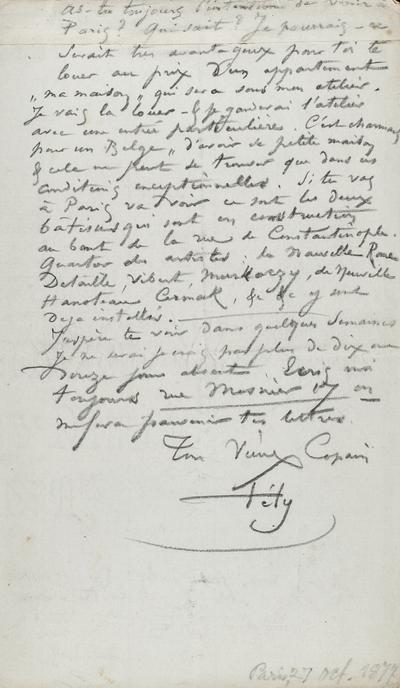 As-tu toujours l'intention de venir à
Paris? Qui sait? Je pourrais te
Serait très avantageux pour toi de
louer au prix d'un appartement
"ma maison" qui sera sous mon atelier.
Je vais la louer & je garderai l'atelier
avec une entrée particulières. C'est charmant
"pour un Belge" d'avoir sa petite maison
& cela ne peut se trouver que dans ces
conditions exceptionnelles. Si tu vas
à Paris va voir ce sont les deux
bâtisses qui sont en construction
au bout de la rue de Constantinople.
Quartier des artistes: de Nouvelle Rome
Detaille, Vibert, Munkaczy, de Neuville
Hanoteau Cermak, &c &c y sont
Déjà installés.
J'espère te voir dans quelques semaines
Je ne serai je crois pas plus de dix ou
Douze jours absent. Ecris moi
toujours rue Mosnier 17 on
me fera parvenir tes lettres.
Ton Vieux Copain
Fély
Paris, 27 oct. 1877